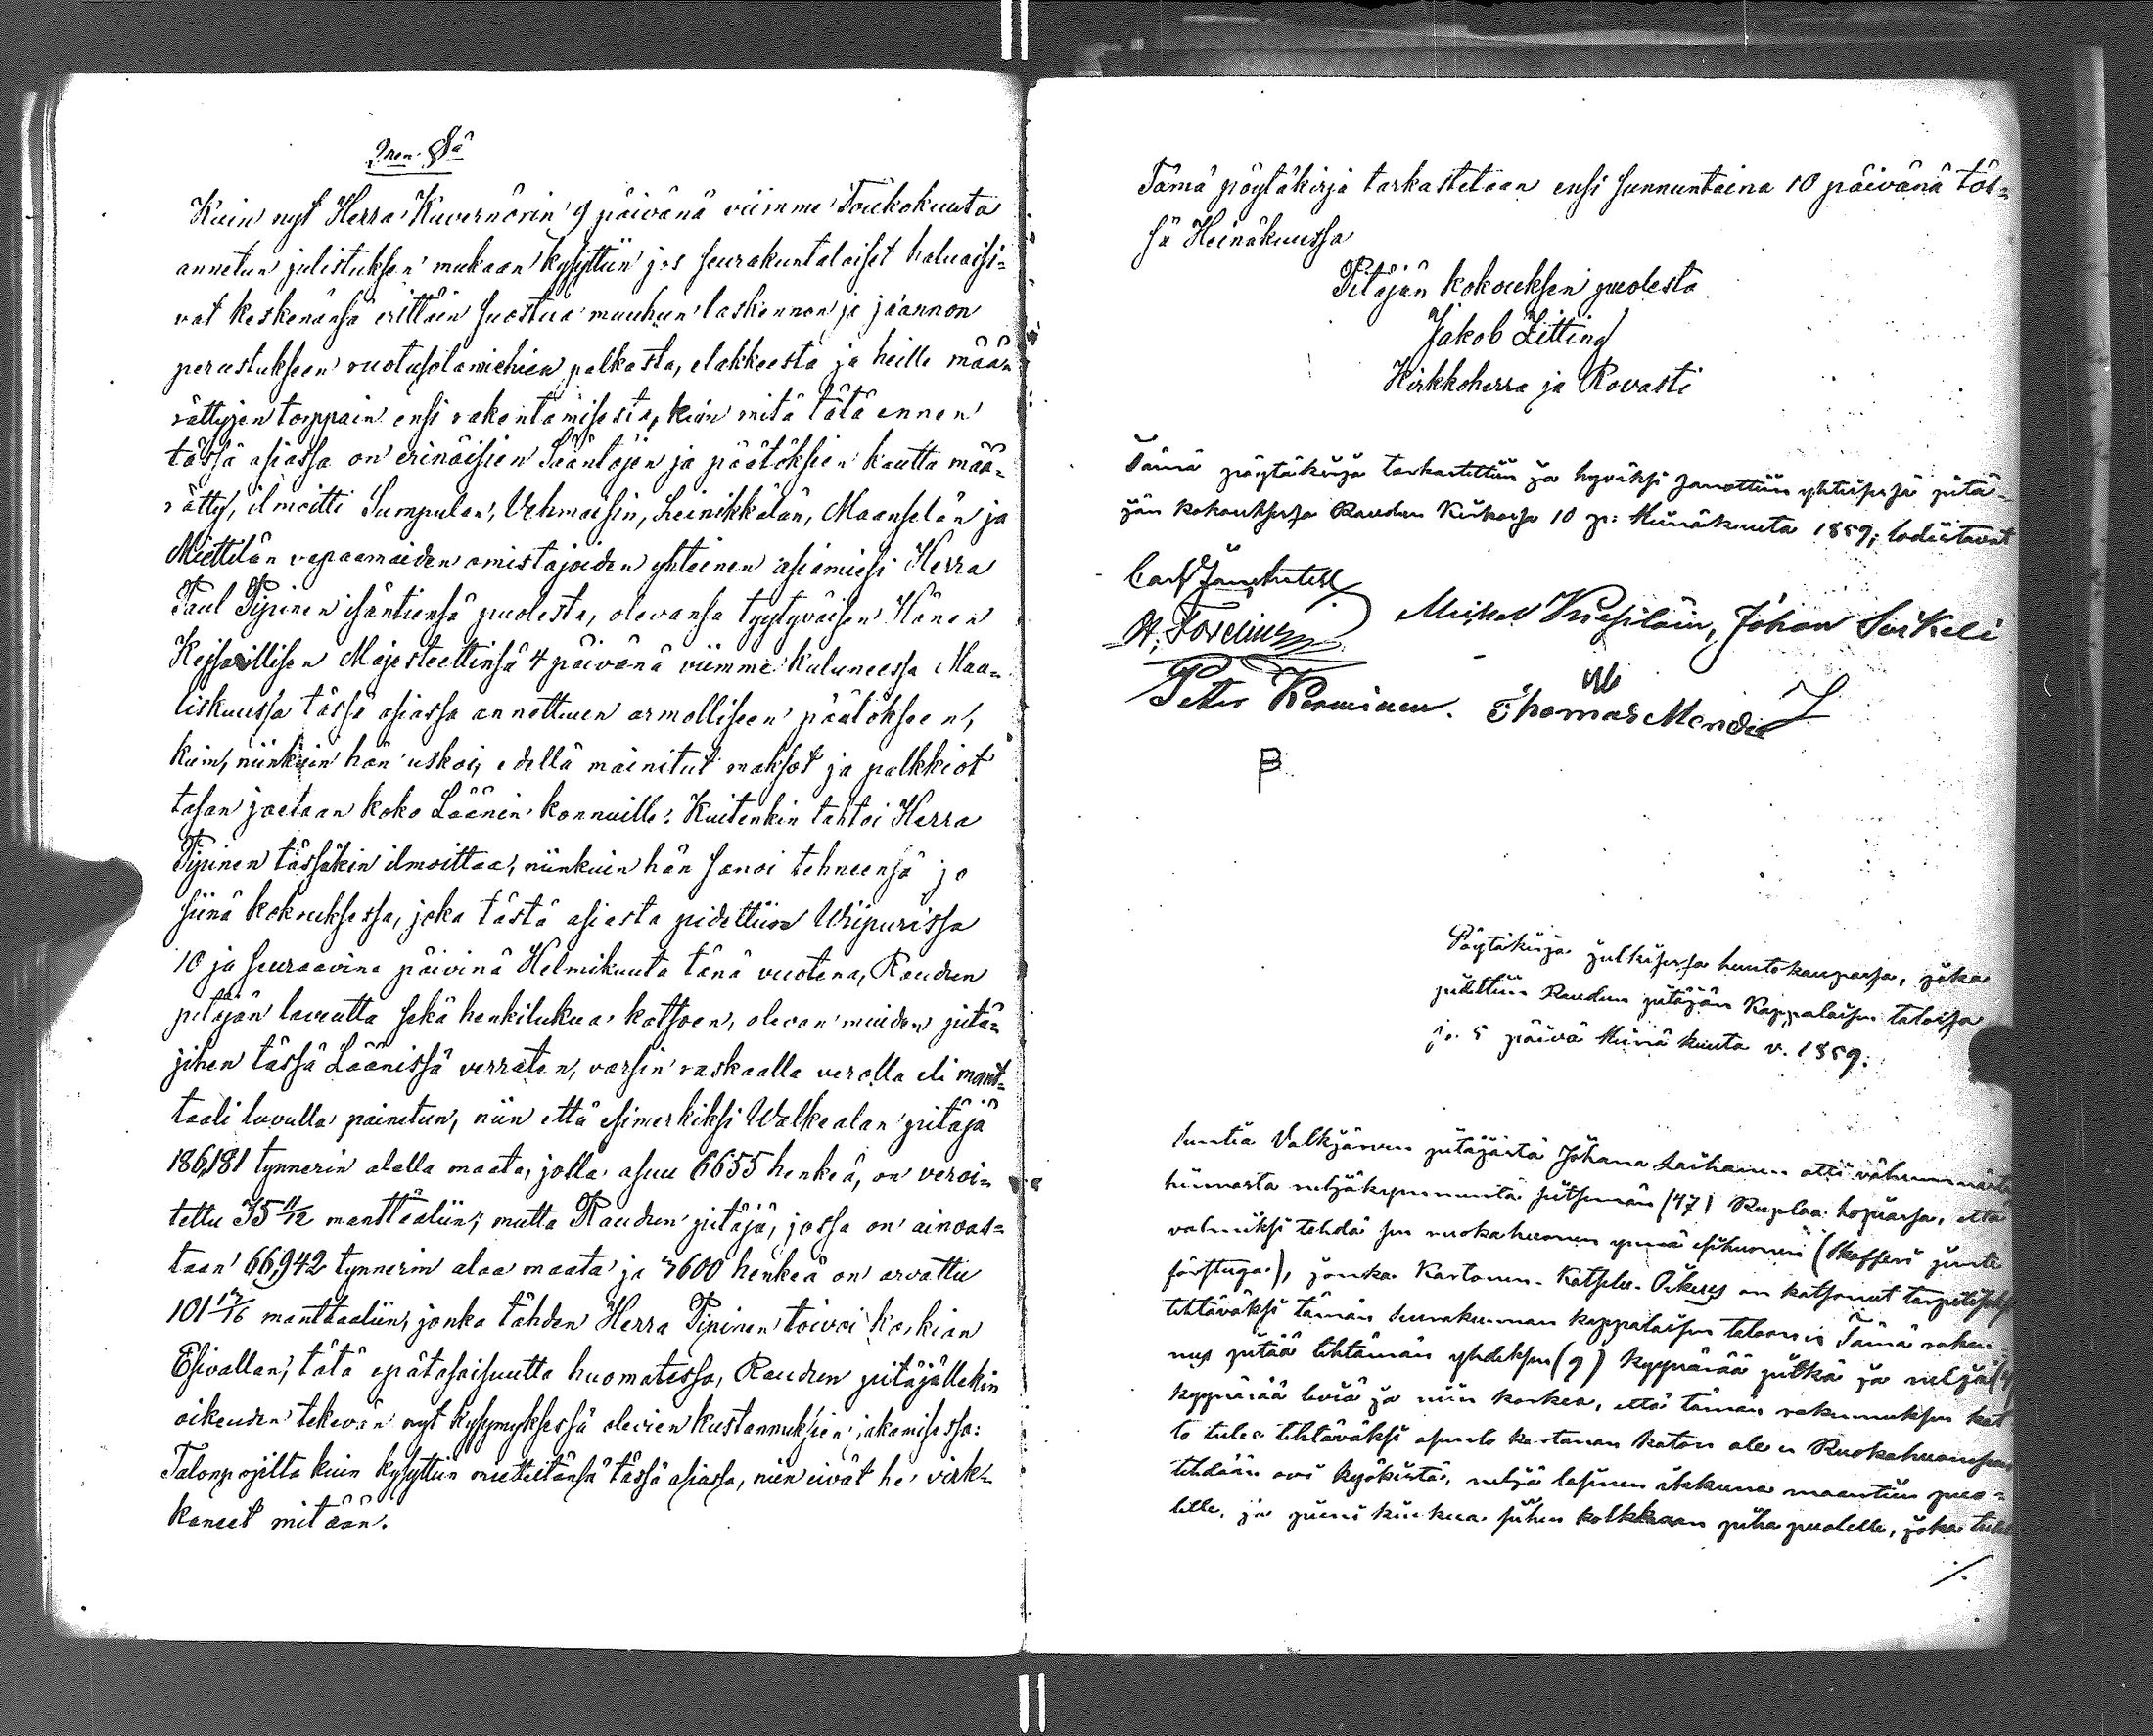 2nen §ä
Kuin nyt Herra Kuvernörin 9 päivänä viimme Toukokuuta
annetun julistuksen mukaan kysyttiin jos seurakuntalaiset haluaisi=
vat keskenänsä erittäin suostua muuhun laskennon ja jäännon
perustukseen ruotusotamiehien palkasta, elakkeesta ja heille mää=
rättyjen torppain ensi rakentamisesta, kuin mitä tätä ennen
tässä asiassa on erinäisien Sääntöjen ja päätöksien kautta mää=
rätty, ilmoitti Sumpulan, Vehmaisin, Leinikkälän, Maanselän ja
Miettilän vapaamaiden omistajoiden yhteinen asiamiesi Herra
Paul Pipinen isäntiensä puolesta, olevansa tyytyväisen Hänen
Kejsarillisen Majesteettinsä 4 päivänä viimme kuluneessa Maa=
liskuussa tässä asiassa annettuun armolliseen päätökseen,
kuin, niinkuin hän uskoi, edellä mainitut maksot ja palkkiot
tasan jaetaan koko Läänin konnuille: Kuitenkin tahtoi Herra
Pipinen tässäkin ilmoittaa, niinkuin hän sanoi tehneensä jo
siinä kokouksessa, joka tästä asiasta pidettiin Wiipurissa
10 ja seuraavina päivinä Helmikuuta tänä vuotena, Raudun
pitäjän laveutta sekä henkilukua katsoen, olevan muiden pitä=
jihen tässä Läänissä verraten, varsin raskaalla verolla eli mant=
taali luvulla painetun, niin että esimerkiksi Walkealan pitäjä
186,181 tynnerin alalla maata, jolla asuu 6655 henkeä, on veroi=
tettu 35 11/12 manttaaliin; mutta Raudun pitäjä, jossa on ainoas=
taan 66,942 tynnerin alaa maata ja 3600 henkeä on arvattu
101 manttaaliin, jonka tähden Herra Pipinen toivoi korkian
Esivallan, tätä epätasaisuutta huomatessa, Raudun pitäjällekin
oikeuden tekevän nyt kysymyksessä olevien kustannuksien jakamisessa:
Talonpojilta kuin kysyttiin mietteitänsä tässä asiassa, niin eivät he virk=
kaneet mitään.
Tämä pöytäkirja tarkastetaan ensi sunnuntaina 10 päivänä täs=
sä Heinäkuussa
Pitäjän kokouksen puolesta
Jakob Zitting
Kirkkoherra ja Rovasti
Tämä pöytäkirja tarkastettiin ja hyväksi sanottiin yhteisessä pitä=
jän kokouksessa Raudun Kirkossa 10 p: Heinäkuuta 1859; todistavat
Carl
A. Forelius Michel Kiesiläin, Johan Sirkeli
Petter Thomas
Pöytäkirja julkisessa huutokaupassa, joka
pidettiin Raudun pitäjän Kappalaisen talossa
jo. 5 päivä Heinä kuuta v. 1859.
Suntia Valkjärven pitäjästä Johana Laihanen otti vähimmästä
hinnasta neljäkymmentä seitsemän (47) Ruplaa hopiassa, että
valmiiksi tehdä sen ruokahuonen ynnä esihuonen (Skafferi jemte
förstuga), jonka Kartonon-Katselu-Oikeus on katsonut tarpeelliseksi
tehtäväksi tämän seurakunnan kappalaisen taloon; Tämä raken=
nus pitää tehtämän yhdeksen (9) kyynärää pitkä ja neljä (4)
kyynärää leviä ja niin korkea, että tämän rakennuksen kat
to tulee tehtäväksi asunto kartanon katon ale; Ruokahuoneseen
tehdään ovi kyökistä, neljä lasinen ikkuna maantien puo=
lelle, ja pieni siihen kolkkaan piha puolelle, joka tulee
./.